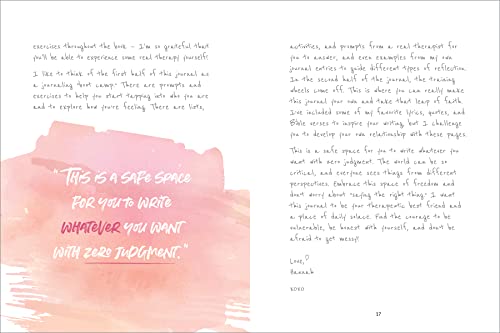 exercises throughout the book – I'm so grateful that
you'll be able to experience some real therapy yourself!
I like to think of the first half of this journal as
a journaling "boot camp." There are prompts and
exercises to help you start tapping into who you are
and to explore how you're feeling. There are lists,
"THIS IS A SAFE SPACE
FOR YOU TO WRITE
WHATEVER YOU WANT
WITH ZERO JUDGMENT."
activities, and prompts from a real therapist for
you to answer, and even examples from my own
journal entries to guide different types of reflection.
In the second half of the journal, the training
wheels come off. This is where you can really make
this journal your own and take that leap of faith.
I've included some of my favorite lyrics, quotes, and
Bible verses to inspire your writing, but I challenge
you to develop your own relationship with these pages.
This is a safe space for you to write whatever you
want with zero judgment. The world can be so
critical, and everyone sees things from different
perspectives. Embrace this space of freedom and
don't worry about saying the right thing. I want
this journal to be your therapeutic best friend and
a place of daily solace. Find the courage to be
vulnerable, be honest with yourself, and don't be
afraid to get messy!
Love,
Hannah
XOXO
17